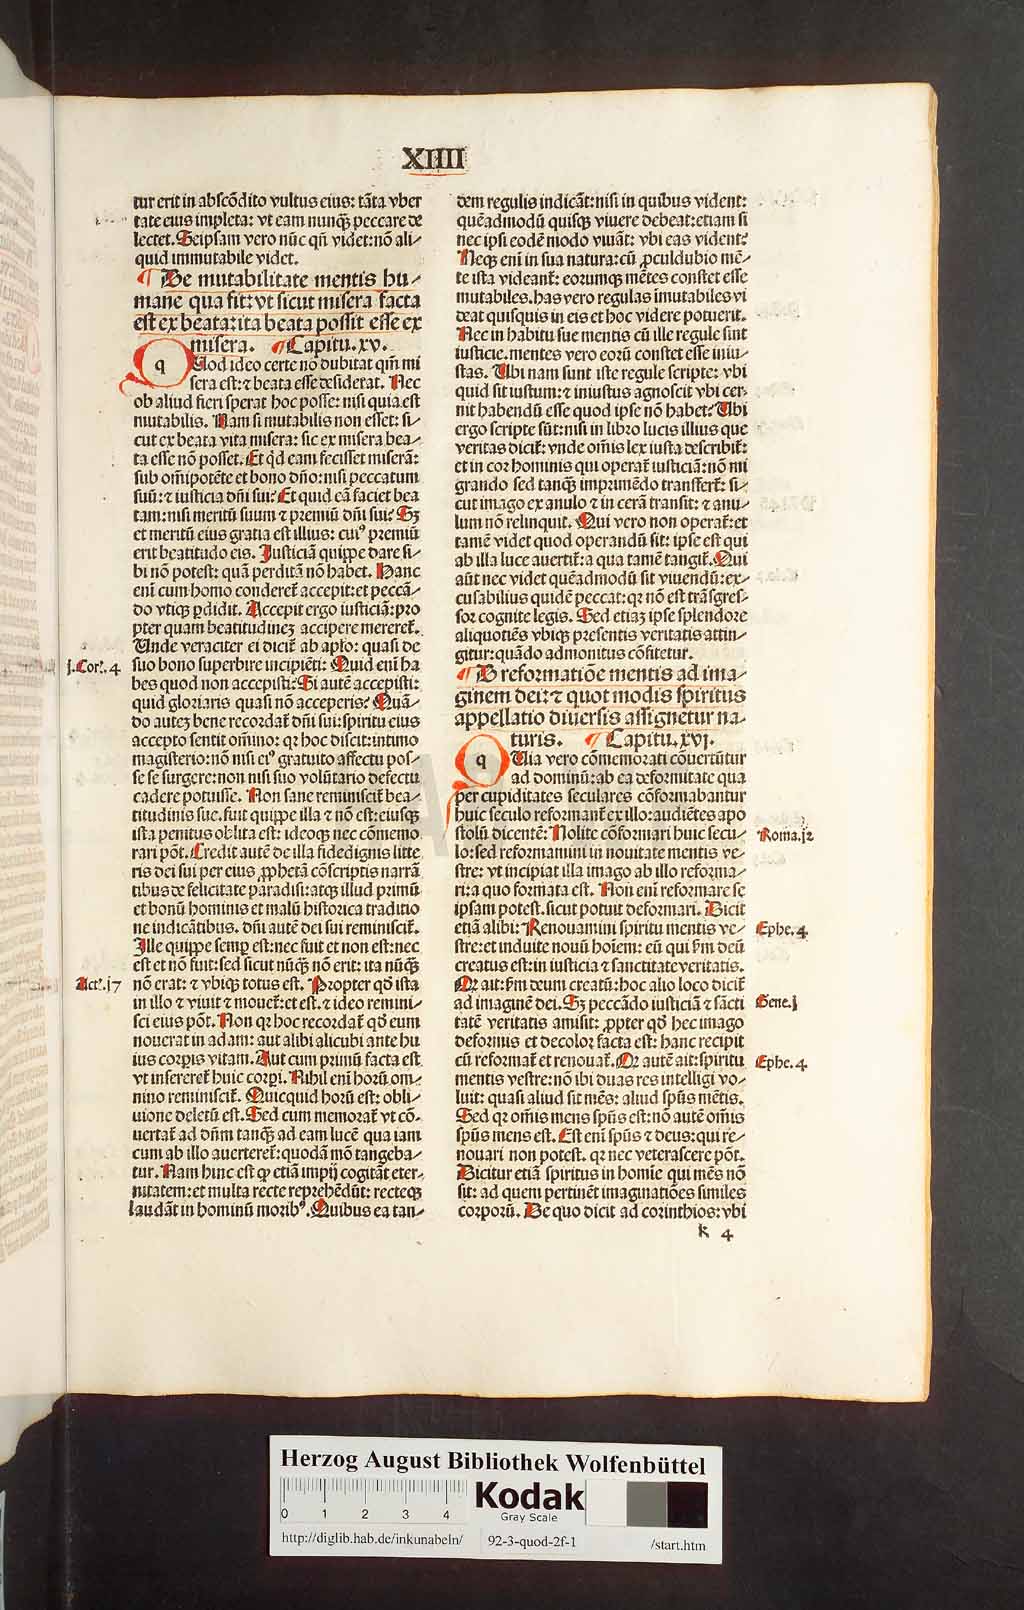 XIIII
tur erit in abscõdito vultus eius: tãta vber
tate eius impleta: vt eam nunqȝ peccare de
lectet. Seipsam vero nũc qñ videt: nõ ali-
quid immutabile videt.
¶ De mutabilitate mentis hu-
mane qua fit: vt sicut misera facta
est ex beata: ita beata possit esse ex
misera. ¶ Capitu. xv.
q Uod ideo certe nõ dubitat qm̃ mi
sera est: ⁊ beata esse desiderat. Nec
ob aliud fieri sperat hoc posse: nisi quia est
mutabilis. Nam si mutabilis non esset: si-
cut ex beata vita misera: sic ex misera bea-
ta esse nõ posset. Et qd̃ eam fecisset miserã:
sub om̃ipotẽte et bono dño: nisi peccatum
suũ: ⁊ iusticia dñi sui? Et quid eã faciet bea
tam: nisi meritũ suum ⁊ premiũ dñi sui? Sȝ
et meritũ eius gratia est illius: cuiꝰ premiũ
erit beatitudo eis. Justiciã quippe dare si-
bi nõ potest: quã perditã nõ habet. Hanc
eni᷑ cum homo conderet᷑ accepit: et peccã-
do vtiqȝ ꝑdidit. Accepit ergo iusticiã: pro
pter quam beatitudineȝ accipere mereret᷑.
Unde veraciter ei dicit᷑ ab apl̃o: quasi de
j. Corꝛ. 4
suo bono superbire incipiẽti: Quid eni᷑ ha
bes quod non accepisti? Si autẽ accepisti:
quid gloriaris quasi nõ acceperis? Quã-
do auteȝ bene recordat᷑ dñi sui: spiritu eius
accepto sentit om̃ino: qꝛ hoc discit: intimo
magisterio: nõ nisi eiꝰ gratuito affectu pos-
se se surgere: non nisi suo volũtario defectu
cadere potuisse. Non sane reminiscit᷑ bea-
titudinis sue. fuit quippe illa ⁊ nõ est: eiusqȝ
ista penitus oblita est: ideoqȝ nec cõmemo
rari põt. Credit autẽ de illa fide dignis litte
ris dei sui per eius ꝓphetã cõscriptis narrã
tibus de felicitate paradisi: atqȝ illud primũ
et bonũ hominis et malũ historica traditio
ne indicãtibus. dñi autẽ dei sui reminiscit᷑.
Ille quippe semꝑ est: nec fuit et non est: nec
est et nõ fuit: sed sicut nũqȝ nõ erit: ita nũqȝ
Actꝛ. j7
nõ erat: ⁊ vbiqȝ totus est. Propter qd̃ ista
in illo ⁊ viuit ⁊ mouet᷑: et est. ⁊ ideo remini-
sci eius põt. Non qꝛ hoc recordat᷑ qd̃ eum
nouerat in adam: aut alibi alicubi ante hu
ius corꝑis vitam. Aut cum primũ facta est
vt insereret᷑ huic corꝑi. Nihil eni᷑ horũ om-
nino reminiscit᷑. Quicquid horũ est: obli-
uione deletũ est. Sed cum memorat᷑ vt cõ-
uertat᷑ ad dñm tanqȝ ad eam lucẽ qua iam
cum ab illo auerteret᷑: quodã mõ tangeba-
tur. Nam hinc est ꝙ etiã impij cogitãt eter-
nitatem: et multa recte reprehẽdũt: recteqȝ
laudãt in hominũ moribꝰ. Quibus ea tan-
dem regulis indicãt: nisi in quibus vident:
quẽadmodũ quisqȝ viuere debeat: etiam si
nec ipsi eodẽ modo viuãt: vbi eas vident?
Neqȝ eni᷑ in sua natura: cũ ꝓculdubio mẽ-
te ista videant᷑: eorumqȝ mẽtes constet esse
mutabiles. has vero regulas imutabiles vi
deat quisquis in eis et hoc videre potuerit.
Nec in habitu sue mentis cũ ille regule sint
iusticie. mentes vero eorũ constet esse iniu-
stas. Ubi nam sunt iste regule scripte: vbi
quid sit iustum: ⁊ iniustus agnoscit vbi cer-
nit habendũ esse quod ipse nõ habet? Ubi
ergo scripte sũt: nisi in libro lucis illius que
veritas dicit᷑: vnde om̃is lex iusta describit᷑:
et in cor hominis qui operat᷑ iusticiã: nõ mi
grando sed tanqȝ imprimẽdo transfert᷑: si-
cut imago ex anulo ⁊ in cerã transit: ⁊ anu-
lum nõ relinquit. Qui vero non operat᷑: et
tamẽ videt quod operandũ sit: ipse est qui
ab illa luce auertit᷑: a qua tamẽ tangit᷑. Qui
aũt nec videt quẽadmodũ sit viuendũ: ex-
cusabilius quidẽ peccat: qꝛ nõ est trãsgres-
sor cognite legis. Sed etiaȝ ipse splendore
aliquotiẽs vbiqȝ presentis veritatis attin-
gitur: quãdo admonitus cõfitetur.
¶ D reformatiõe mentis ad ima-
ginem dei: ⁊ quot modis spiritus
appellatio diuersis assignetur na-
turis. ¶ Capitu. xvj.
q Uia vero cõmemorati cõuertũtur
ad dominũ: ab ea deformitate qua
per cupiditates seculares cõformabantur
huic seculo reformant᷑ ex illo: audiẽtes apo
stolũ dicentẽ: Nolite cõformari huic secu-
Roma. j2
lo: sed reformamini in nouitate mentis ve-
stre: vt incipiat illa imago ab illo reforma-
ri: a quo formata est. Non eni᷑ reformare se
ipsam potest. sicut potuit deformari. Dicit
etiã alibi: Renouamini spiritu mentis ve-
Ephe. 4
stre: et induite nouũ hoi᷑em: eũ qui ẜm deũ
creatus est: in iusticia ⁊ sanctitate veritatis.
Qꝛ ait: ẜm deum creatũ: hoc alio loco dicit᷑
ad imaginẽ dei. Sȝ peccãdo iusticiã ⁊ sãcti
Gene. j
tatẽ veritatis amisit: ꝓpter qd̃ hec imago
deformis et decolor facta est: hanc recipit
cũ reformat᷑ et renouat᷑. Qꝛ autẽ ait: spiritu
Ephe. 4
mentis vestre: nõ ibi duas res intelligi vo-
luit: quasi aliud sit mẽs: aliud spũs mẽtis.
Sed qꝛ om̃is mens spũs est: nõ autẽ om̃is
spũs mens est. Est eni᷑ spũs ⁊ deus: qui re-
nouari non potest. qꝛ nec veterascere põt.
Dicitur etiã spiritus in homi᷑e qui mẽs nõ
sit: ad quem pertinẽt imaginatiões similes
corporũ. De quo dicit ad corinthios: vbi
k 4
Herzog August Bibliothek Wolfenbüttel
0 1 2 3 4
Kodak
Gray Scale
http://diglib.hab.de/inkunabeln/
92-3-quod-2f-1
/start.htm